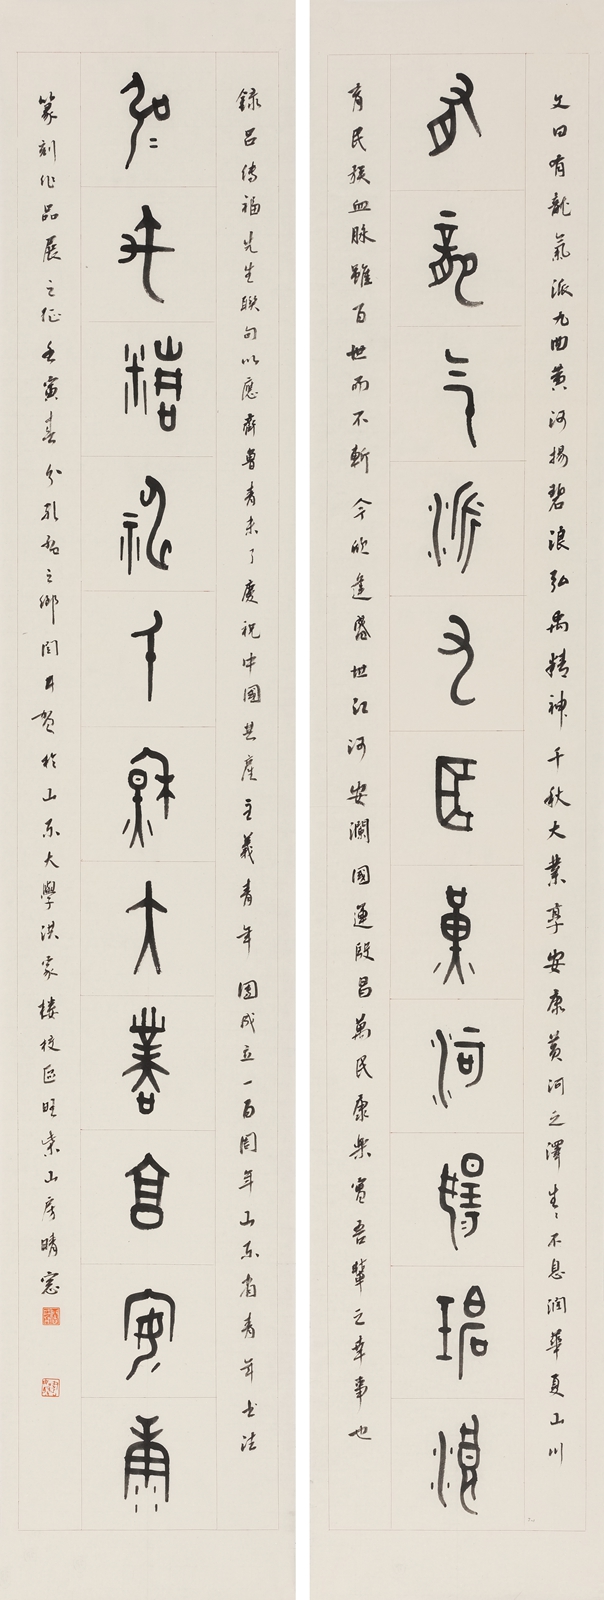 文曰有龍氣派九曲黄河揚碧浪弘禹精神千秋大業享安康黄河之澤生生不息潤華夏山川
有龍气派九曲黄河揚碧浪
育民族血脉雖百世而不斬今欣逢盛世江河安瀾國運殷昌萬民康樂實吾輩之幸事也
録吕傳福先生聯句以應齊魯青未了慶祝中國共產主義青年團成立一百周年山東省青年書法
弘禹精神千秋大業享安康
篆刻作品展之征壬寅春分孔孟之鄉閆於山東大學洪家樓校區旺山房晴窗